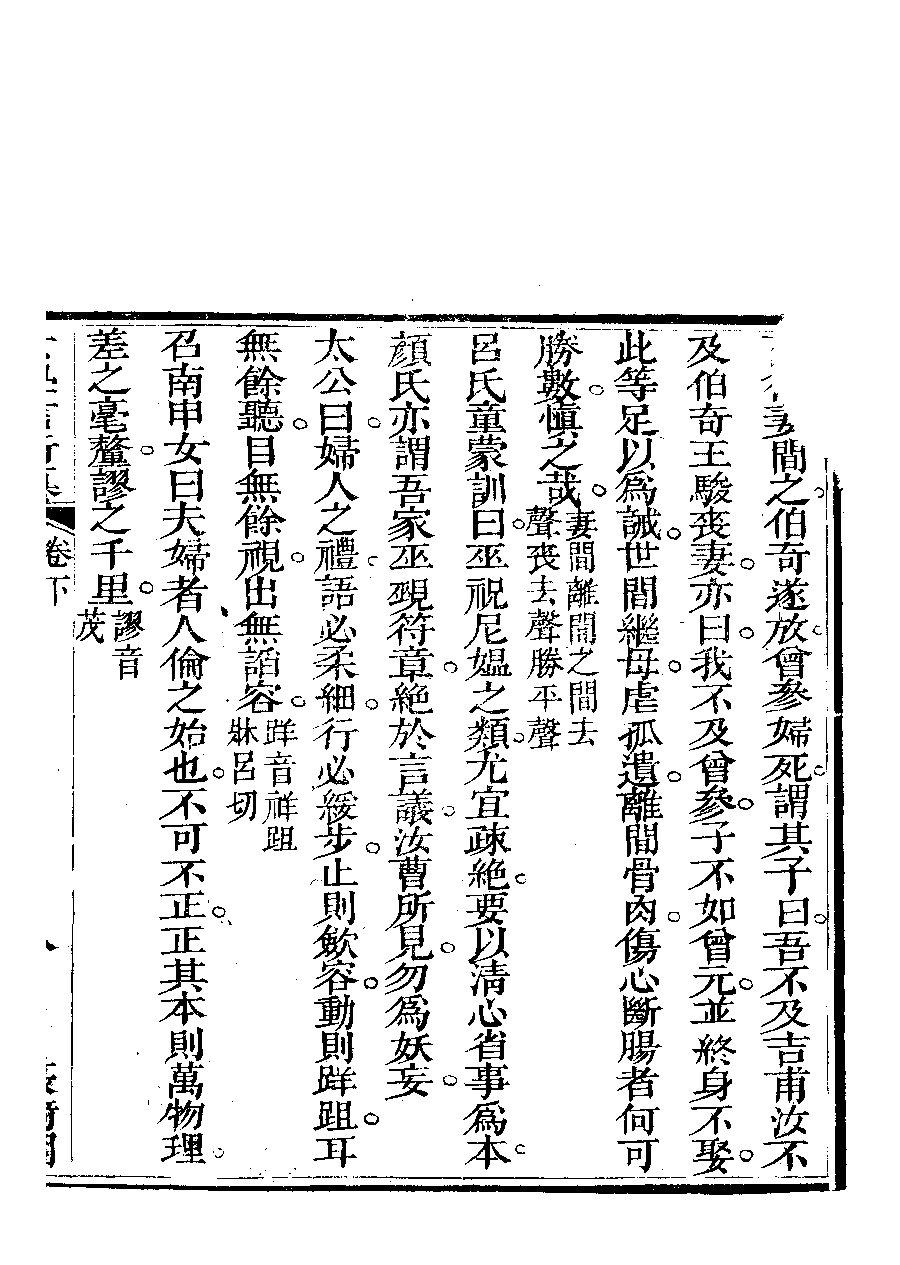 妻間之伯奇遂放曾參婦死謂其子曰吾不及吉甫汝不
及伯奇王駿喪妻亦曰我不及曾參子不如曾元並終身不娶
此等足以為誡世間繼母虐孤遺離間骨肉傷心斷腸者何可
勝數慎之哉妻間離間之間去
聲喪去聲勝平聲
呂氏童蒙訓曰巫祝尼媼之類尤宜疎絶要以清心省事為本
顏氏亦謂吾家巫覡符章絶於言議汝曹所見勿為妖妄
太公曰婦人之禮語必柔細行必緩步止則歛容動則跘跙耳
無餘聽目無餘視出無謟容跘音祥跙
牀呂切
召南申女曰夫婦者人倫之始也不可不正正其本則萬物理
差之毫釐謬之千里謬音
茂
卷下